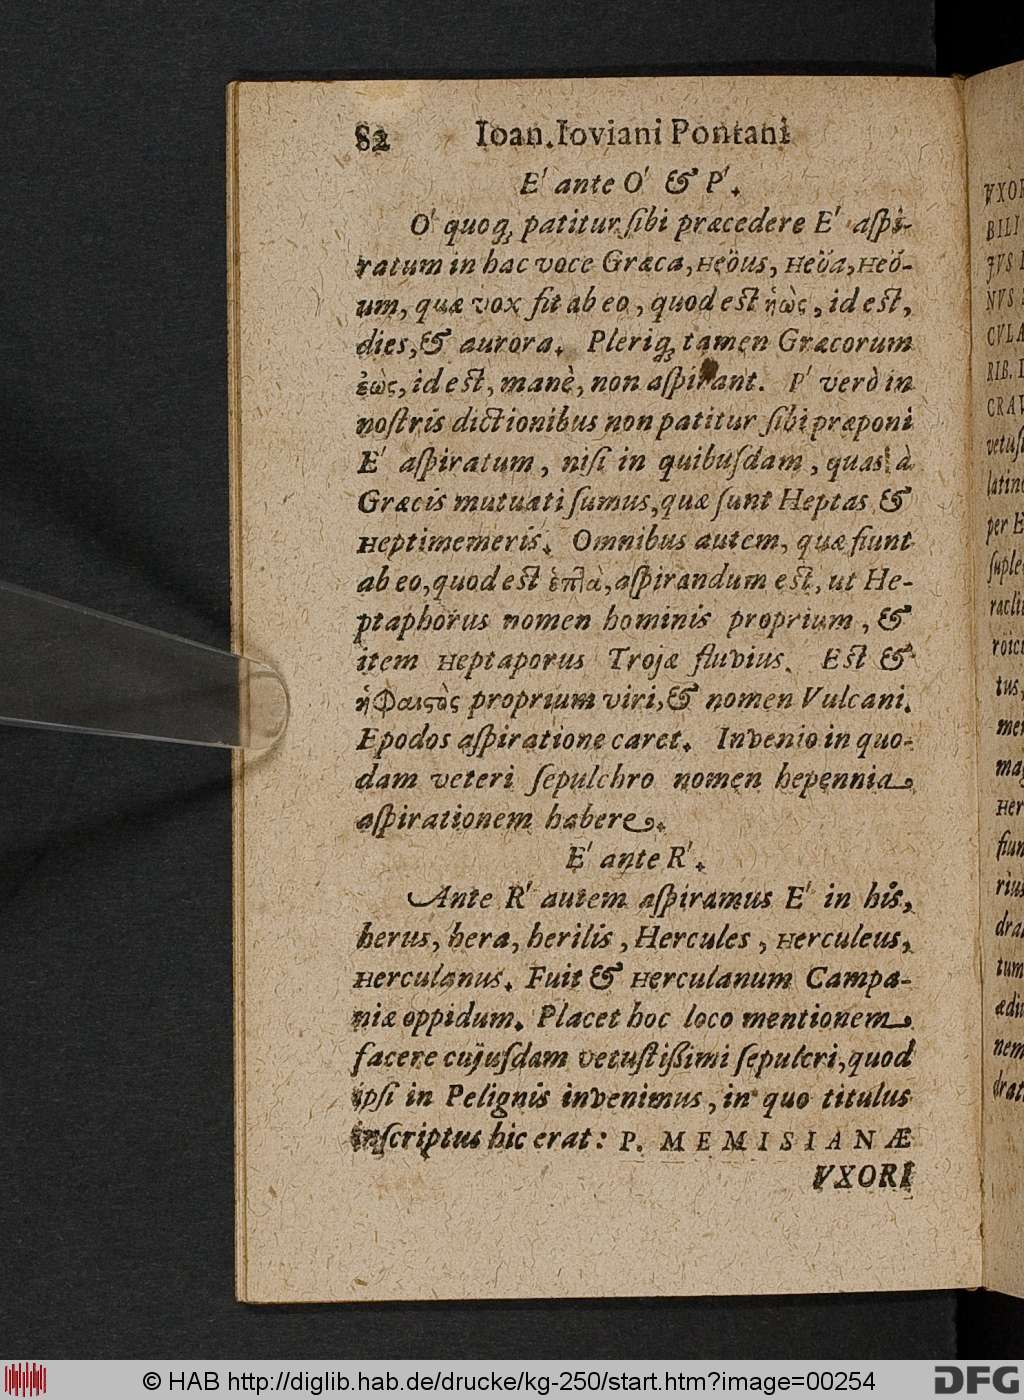 82 Ioan. Ioviani Pontani
E' ante O' & P'.
O' quoq; patitur ſibi præcedere E' aſpi-
ratum in hac voce Græca, Heöus, Heöa, Heö-
um, quæ vox fit ab eo, quod est ἠὼς, id est,
dies, & aurora. Pleriq; tamen Græcorum
ἑὼς, id est, manè, non aſpirant. P' verò in
noſtris dictionibus non patitur ſibi præponi
E' aſpiratum, niſi in quibuſdam, quas à
Græcis mutuati ſumus, quæ ſunt Heptas &
Heptimemeris. Omnibus autem, quæ fiunt
ab eo, quod est ἑπτὰ, aſpirandum est, ut He-
ptaphorus nomen hominis proprium, &
item Heptaporus Trojæ fluvius. Est &
ἡφαιςὸς proprium viri, & nomen Vulcani.
Epodos aſpiratione caret. Invenio in quo-
dam veteri ſepulchro nomen hepennia
aſpirationem habere.
E' ante R'.
Ante R' autem aſpiramus E' in his,
herus, hera, herilis, Hercules, Herculeus,
Herculanus. Fuit & Herculanum Campa-
niæ oppidum. Placet hoc loco mentionem
facere cujuſdam vetuſtißimi ſepulcri, quod
ipſi in Pelignis invenimus, in quo titulus
inſcriptus hic erat: P. MEMISIANÆ
VXORI
VXOR
BILI
JVS
NVS
CVLA
RIB.
CRAV
vetuſ
latin
per E
ſuple
racli
roic
tus,
mer
ma
Her
fiun
riu
dra
tum
ædi
nem
drat
© HAB http://diglib.hab.de/drucke/kg-250/start.htm?image=00254
DFG